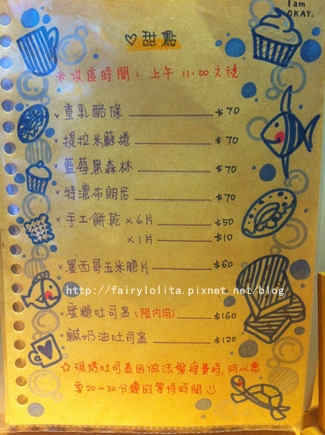 I am
OKAY.
♡甜點
※供應時間：上午 11:00 之後
重乳酪條 $70
提拉米蘇捲 $70
藍莓黑森林 $70
特濃布朗尼 $70
手工餅乾 x6片 $50
x1片 $10
墨西哥玉米脆片 $60
http://fairylolita.pixnet.net/blog
蜜糖吐司盒 (限內用) $160
鹹奶油吐司盒 $120
☆現烤吐司因做法繁複費時,所以需
要20~30分鐘的等待時間